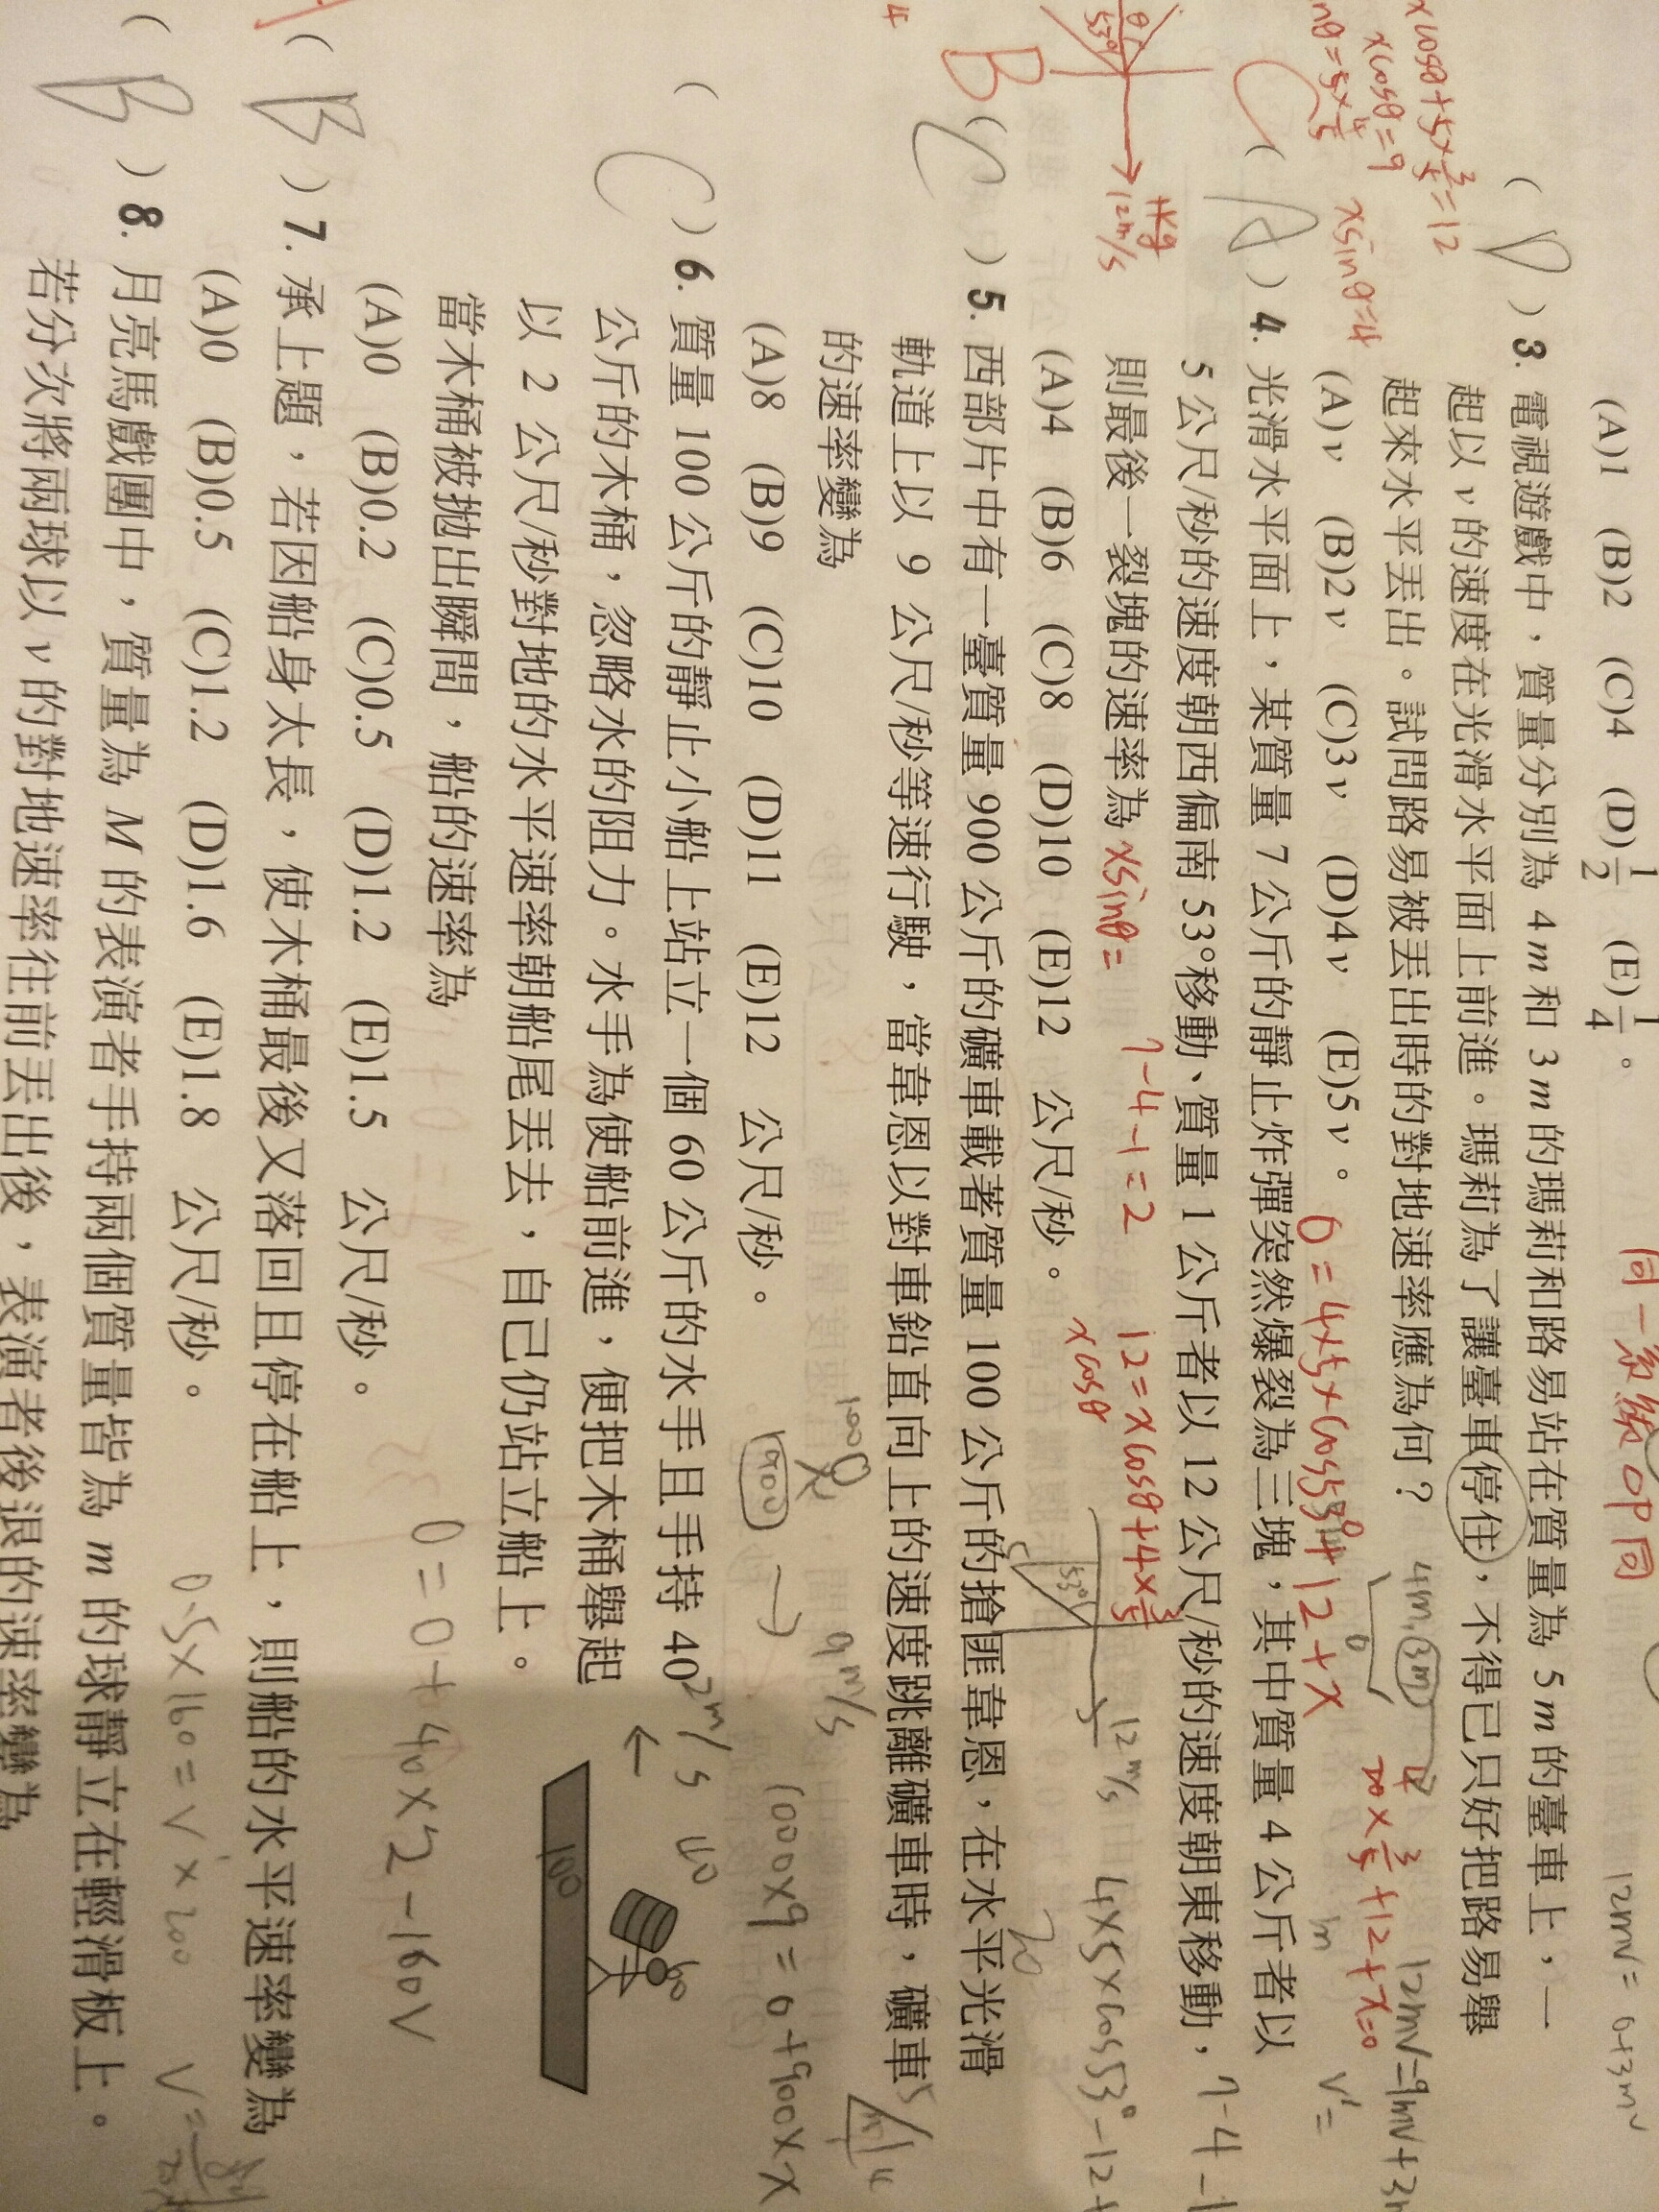 (A)1 (B)2 (C)4 (D)1/2 (E)1/4 。
同一系統 OP同
12mv = 0+3mv
( D ) 3. 電視遊戲中，質量分別為 4m 和 3m 的瑪莉和路易站在質量為 5m 的臺車上，一
起以 v 的速度在光滑水平面上前進。瑪莉為了讓臺車停住，不得已只好把路易舉
起來水平丟出。試問路易被丟出時的對地速率應為何？
(A)v (B)2v (C)3v (D)4v (E)5v。
xcosθ+5×3/5=12
xcosθ=9
xsinθ=4
C ( A ) 4. 光滑水平面上，某質量 7 公斤的靜止炸彈突然爆裂為三塊，其中質量 4 公斤者以
5 公尺/秒的速度朝西偏南 53°移動、質量 1 公斤者以 12 公尺/秒的速度朝東移動，
則最後一裂塊的速率為
xsinθ=
7-4-1=2
12=xcosθ+4×3/5
xcosθ
(A)4 (B)6 (C)8 (D)10 (E)12 公尺/秒。
53°
12m/s
1kg
12m/s
B ( C ) 5. 西部片中有一臺質量 900 公斤的礦車載著質量 100 公斤的搶匪韋恩，在水平光滑
軌道上以 9 公尺/秒等速行駛，當韋恩以對車鉛直向上的速度跳離礦車時，礦車
的速率變為
(A)8 (B)9 (C)10 (D)11 (E)12 公尺/秒。
900
9m/s
1000×9=0+900×x
( C ) 6. 質量 100 公斤的靜止小船上站立一個 60 公斤的水手且手持 40
公斤的木桶，忽略水的阻力。水手為使船前進，便把木桶舉起
以 2 公尺/秒對地的水平速率朝船尾丟去，自己仍站立船上。
當木桶被拋出瞬間，船的速率為
(A)0 (B)0.2 (C)0.5 (D)1.2 (E)1.5 公尺/秒。
2m/s
40
60
100
0=0+40×2-160V
( B ) 7. 承上題，若因船身太長，使木桶最後又落回且停在船上，則船的水平速率變為
(A)0 (B)0.5 (C)1.2 (D)1.6 (E)1.8 公尺/秒。
0.5×160=V×200
( B ) 8. 月亮馬戲團中，質量為 M 的表演者手持兩個質量皆為 m 的球靜立在輕滑板上。
若分次將兩球以 v 的對地速率往前丟出後，表演者後退的速率變為